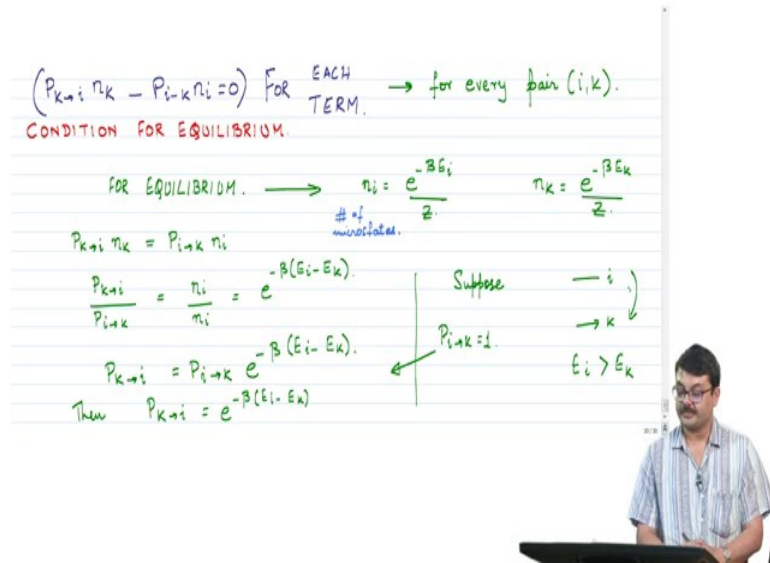 (P_{k→i} n_k – P_{i-k} n_i = 0) FOR EACH TERM. → for every pair (i,k).
CONDITION FOR EQUILIBRIUM.
FOR EQUILIBRIUM. ⟶ n_i = e^{-βE_i}/Z. n_k = e^{-βE_k}/Z.
# of
microstates.
P_{k→i} n_k = P_{i→k} n_i
P_{k→i}/P_{i→k} = n_i/n_i = e^{-β(E_i-E_k)}.
P_{k→i} = P_{i→k} e^{-β(E_i-E_k)}.
Then P_{k→i} = e^{-β(E_i-E_k)}
Suppose — i
→ k
P_{i→k} = 1.
E_i > E_k